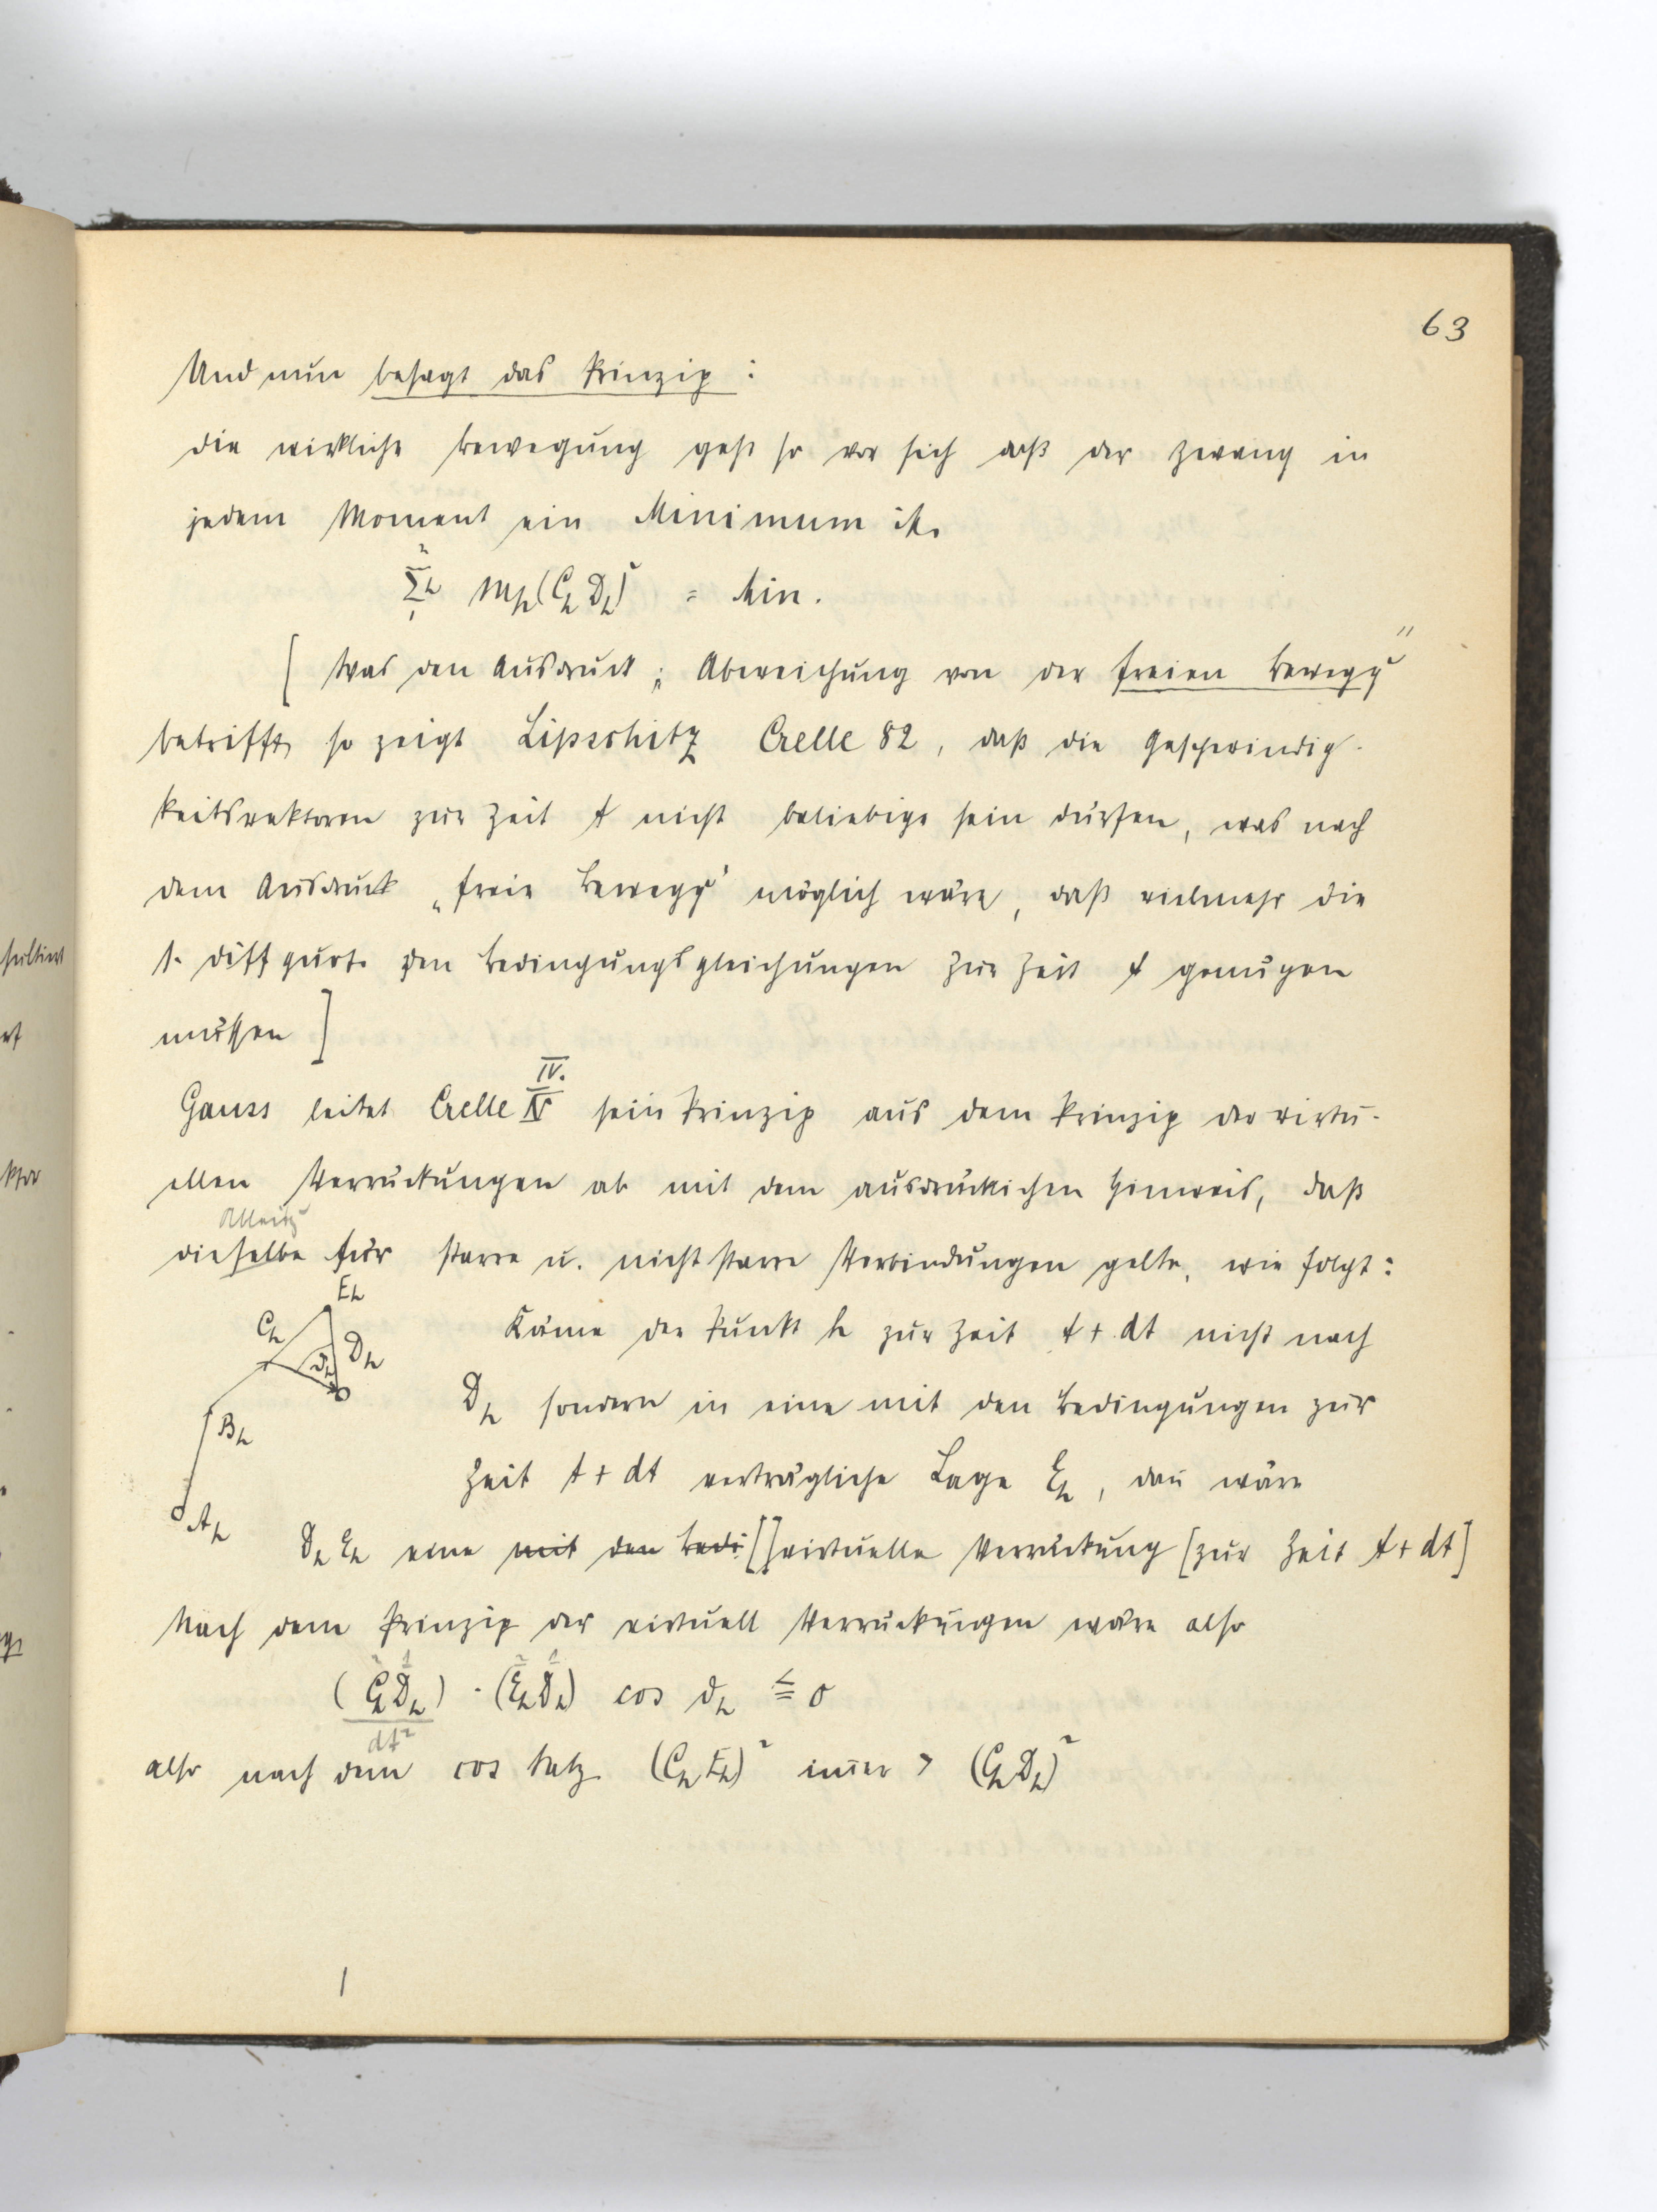 63
Und nun besagt das Prinzip:
die wirkliche Bewegung geht so vor sich daß der Zwang in
jedem Moment ein Minimum ist.
Σ m_h (C_h D_h)² = Min.
[ Was den Ausdruck „Abweichung von der freien Bewegg"
betrifft, so zeigt Lipschitz Crelle 82, daß die Geschwindig-
keitsvektoren zur Zeit t nicht beliebige sein dürfen, was nach
dem Ausdruck „freie Bewegg" möglich wäre, daß vielmehr die
1. Diff quot. den Bedingungsgleichungen zur Zeit t genügen
müssen ]
IV.
Gauss leitet Crelle IV sein Prinzip aus dem Prinzip der virtu-
ellen Verrückungen ab mit dem ausdrücklichen Hinweis, daß
dieselbe für starre u. nicht starre Verbindungen gelte, wie folgt:
E_h
C_h
D_h
ϑ_h
B_h
A_h
Käme der Punkt h zur Zeit t + dt nicht nach
D_h sondern in eine mit den Bedingungen zur
Zeit t + dt verträgliche Lage E_h, dañ wäre
D_h E_h eine mit den Bedi [] virtuelle Verrückung [zur Zeit t + dt]
Nach dem Prinzip der virtuell Verrückungen wäre also
(C_h D_h) · (E_h D_h) cos ϑ_h ≦ 0
dt²
also nach dem cos Satz (C_h E_h)² im̃er > (C_h D_h)²